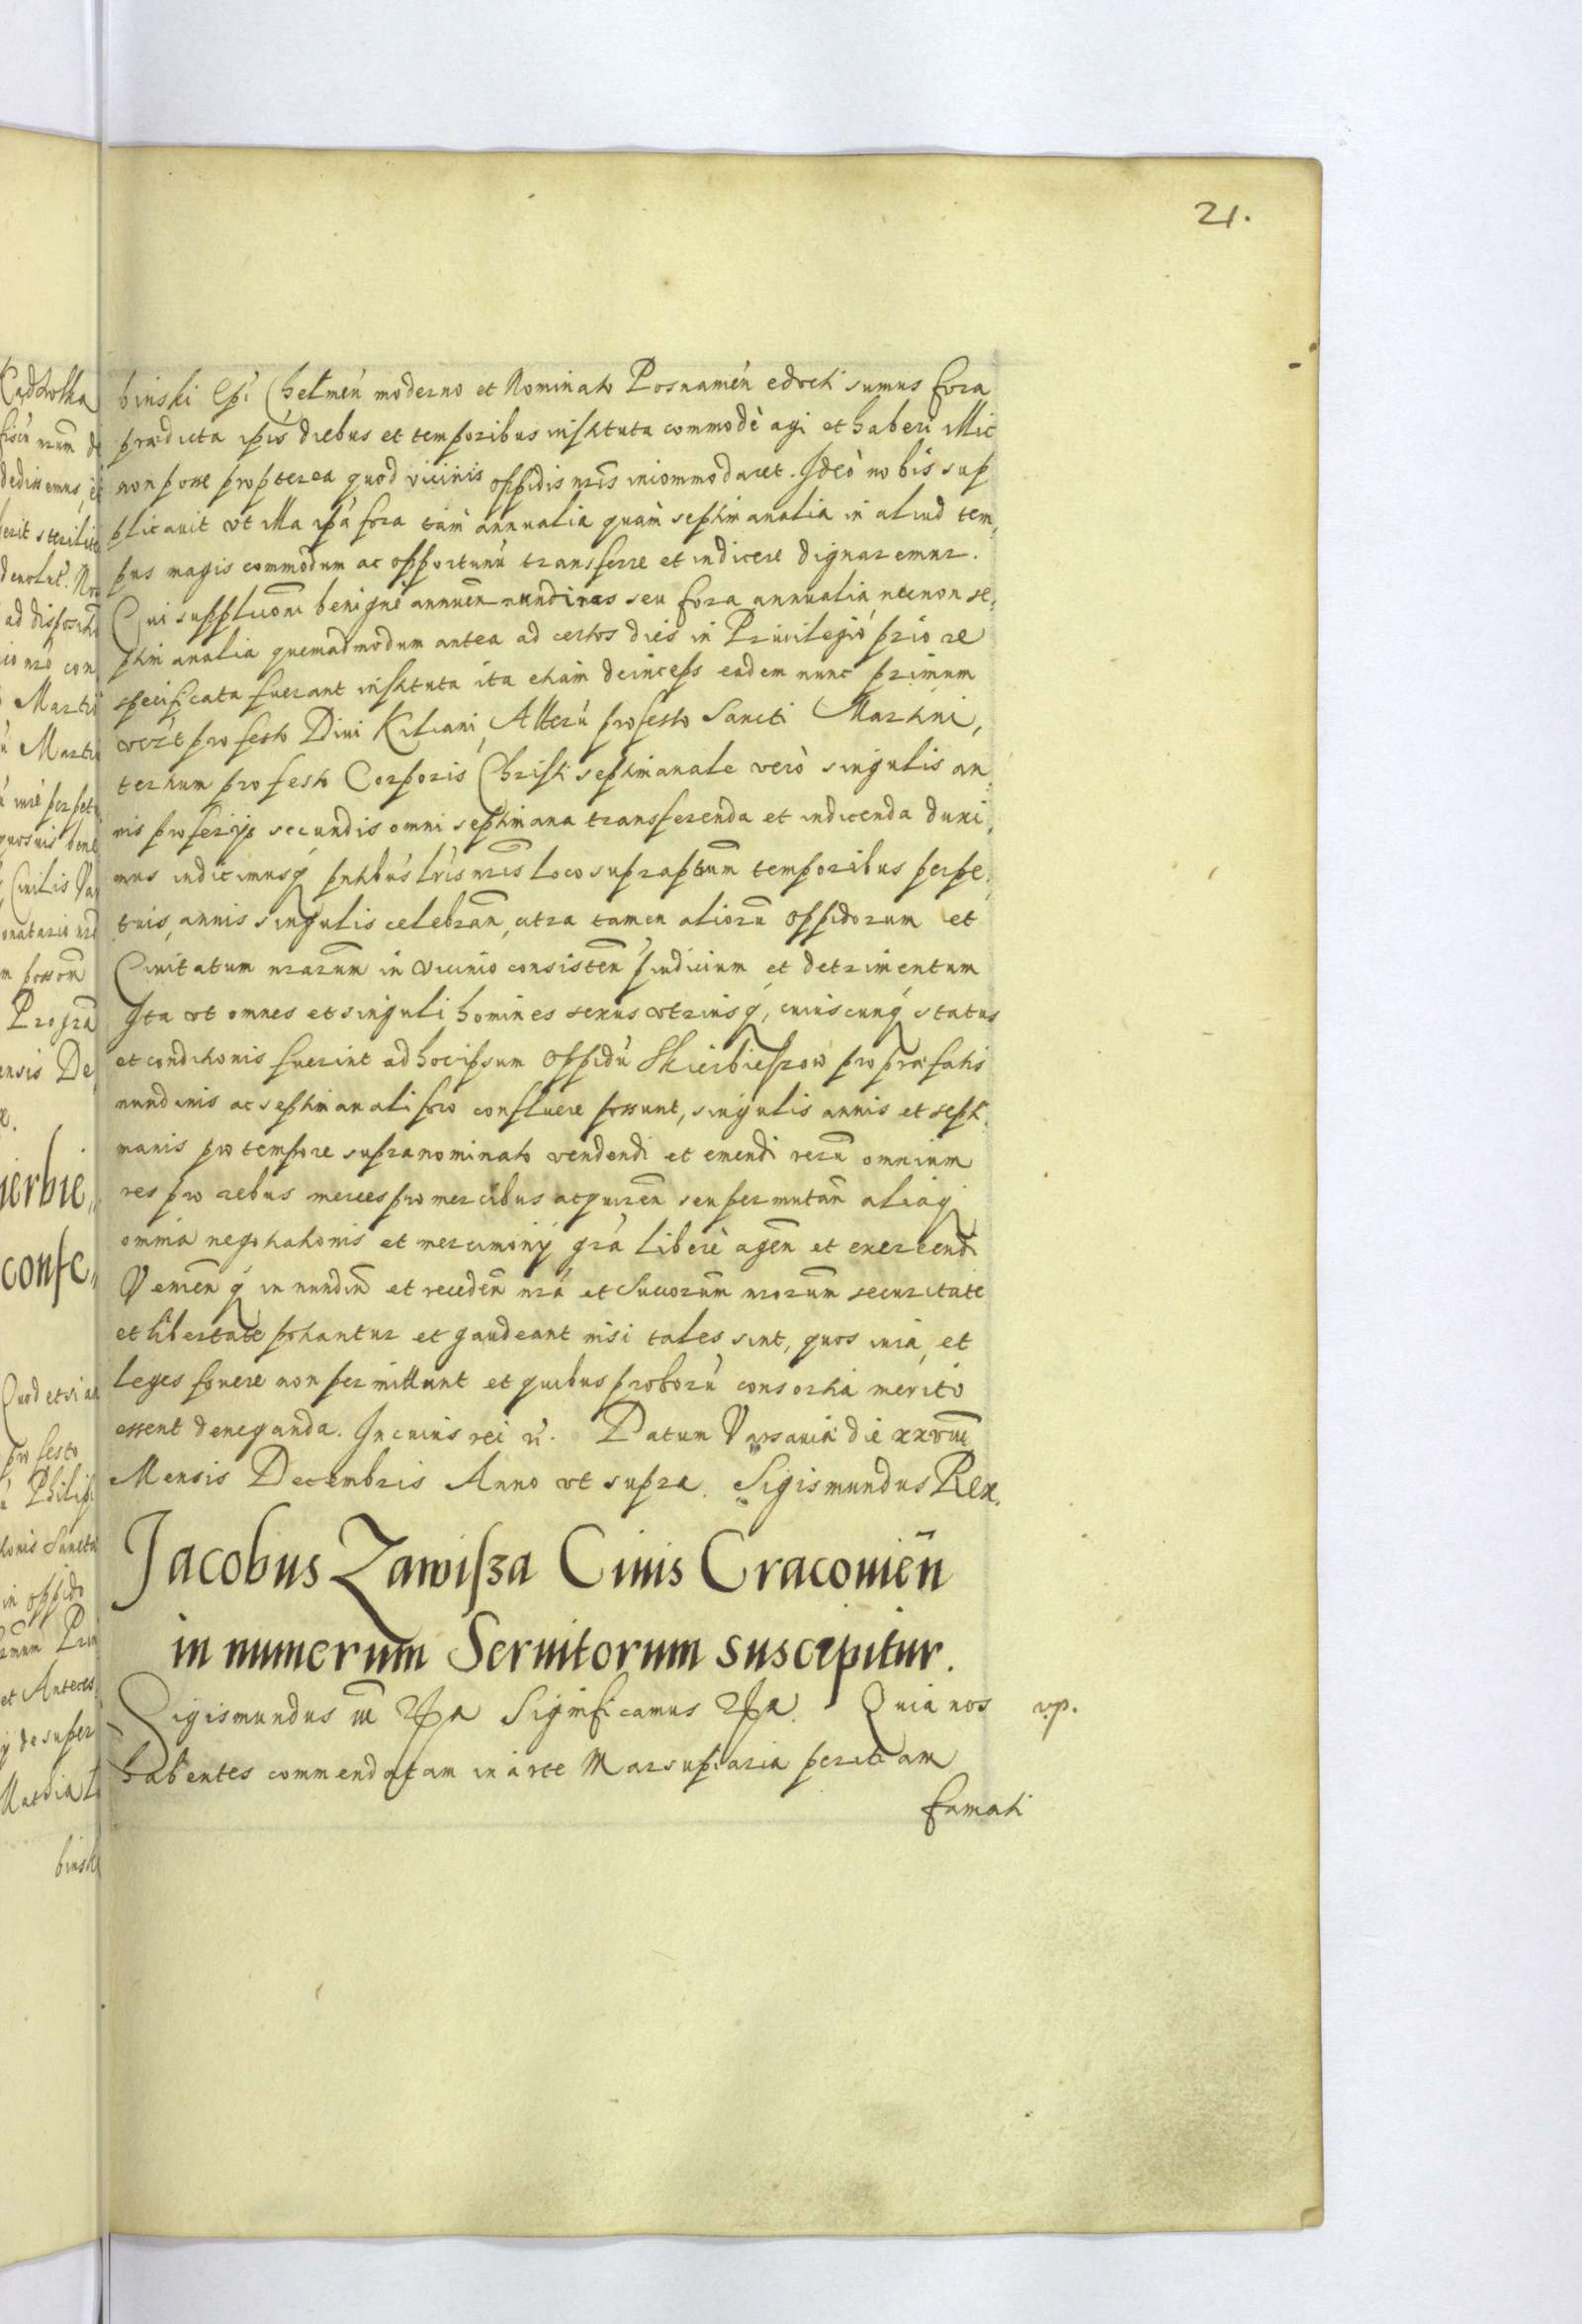 21.
binski Epi Chelmeń moderno et Nominato Posnanień edocti sumus fora
prædicta ipis diebus et temporibus instituta commodè agi et haberi illic
non posse propterea quod vicinis oppidis nris incommodaret. Ideò nobis sup
plicauit vt illa ipa fora tàm annualia quàm septimanalia in aliud tem,
pus magis commodum ac opportunũ transferre et indicere dignaremur.
Cui supplicõni benignè annueñ nundinas seu fora annualia necnon se,
ptimanalia quemadmodum antea ad certos dies in Priuilegio priore
specificata fuerant instituta ita etiam deinceps eadem nunc primum
vert pro festo Diui Kiliani, Alterũ pro festo Sancti Martini,
tertium pro festo Corporis Christi septimanale verò singulis an,
nis pro ferijs secundis omni septimana transferenda et indicenda duxi,
mus indicimusq́ pntibus lris nris loco supraptum temporibus perpe,
tuis, annis singulis celebrañ, citra tamen aliorũ oppidorum et
Ciuitatum nrarum in vicinio consisteñ p̃iudicium et detrimentum
Ita vt omnes et singuli homines sexus vtriusq́, cuiuscunq́ status
et conditionis fuerint ad hoc ipsum oppidũ Skierbieszow pro præfatis
nundinis ac septimanali foro confluere possunt, singulis annis et septi,
manis pro tempore supranominato vendendi et emendi rerũ omnium
res pro rebus merces pro mercibus acquireñ seu permutañ aliaq́
omnia negotiationis et mercimonij grã liberè ageñ et exercendi
Venieñ q́ in nundiñ et recedeñ nrã et Succorum nrorum securitate
et libertate potiantur et gaudeant nisi tales sint, quos iura et
leges fouere non permittunt et quibus proborũ consortia meritò
essent deneganda. In cuius rei &. Datum Varsauiæ die xxviii
Mensis Decembris Anno vt supra. Sigismundus Rex.
Jacobus Zawisza Ciuis Cracouieñ
in numerum Seruitorum suscipitur.
Sigismundus III &a Significamus &a. Quia nos
v.p.
habentes commendatam in arte Marsupiaria peritiam
famati